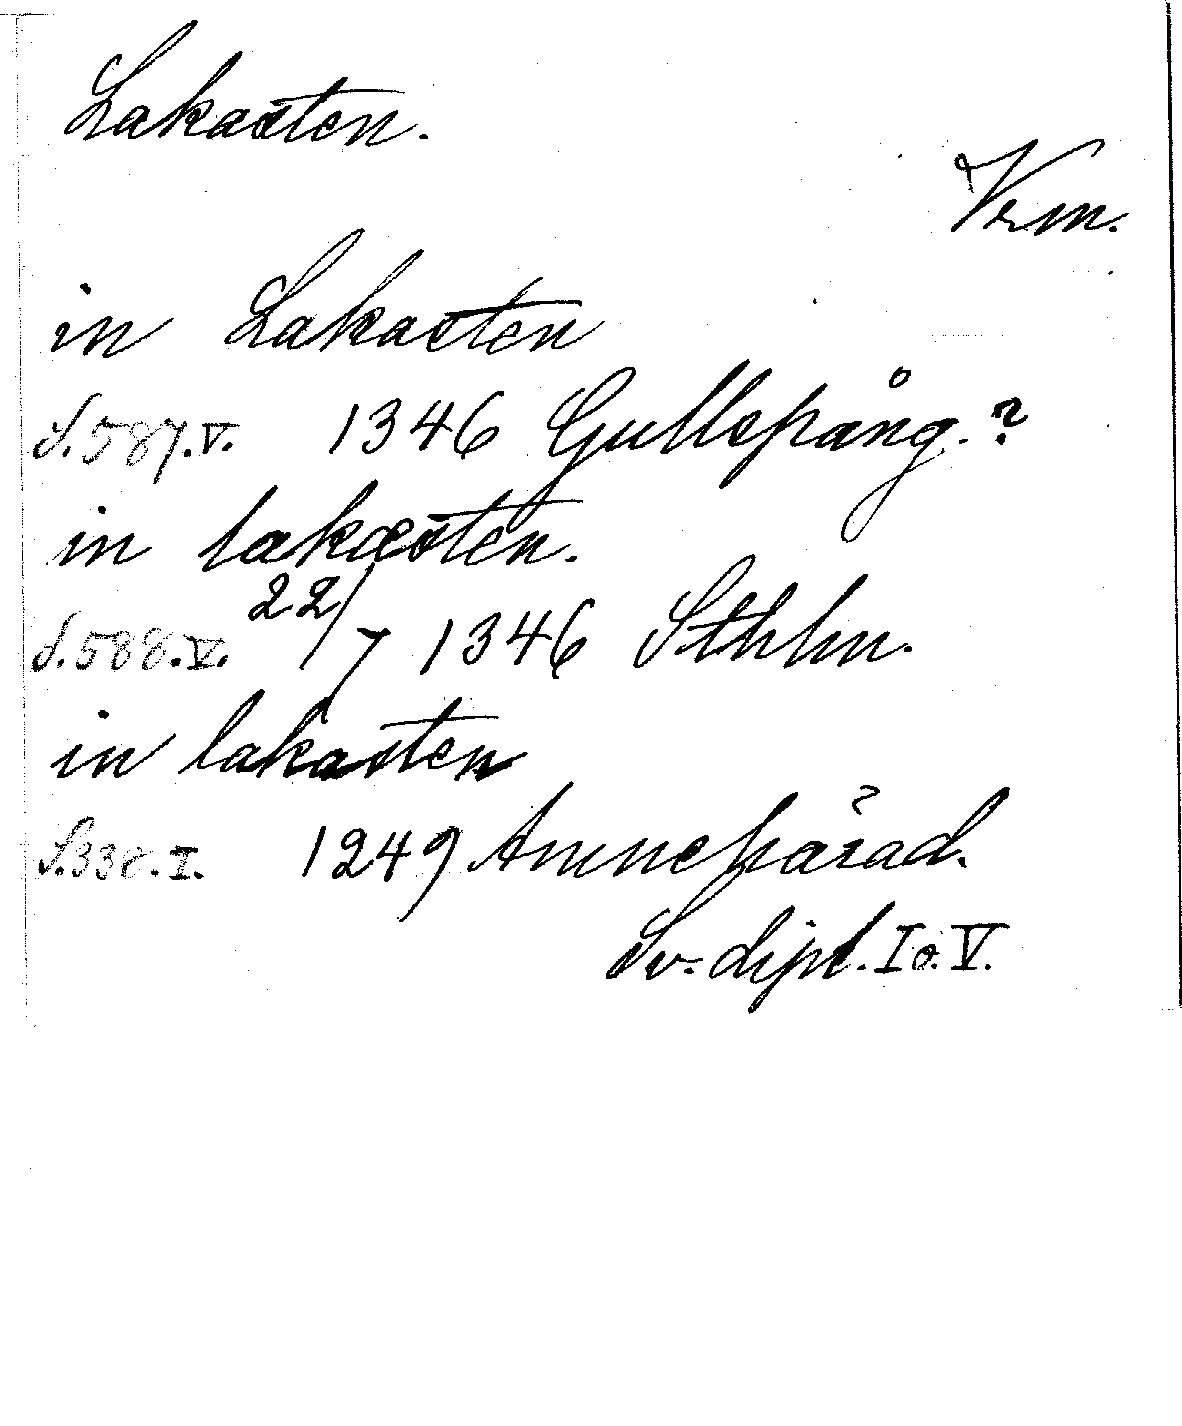 Lakasten.
Vrm.
in Lakasten
S.587.V. 1346 Gullspång.?
in lakæsten.
S.588.V. 22/7 1346 Sthlm.
in lakasten
S.338.I. 1249 Amnehärad.
Sv. dipl. I o. V.